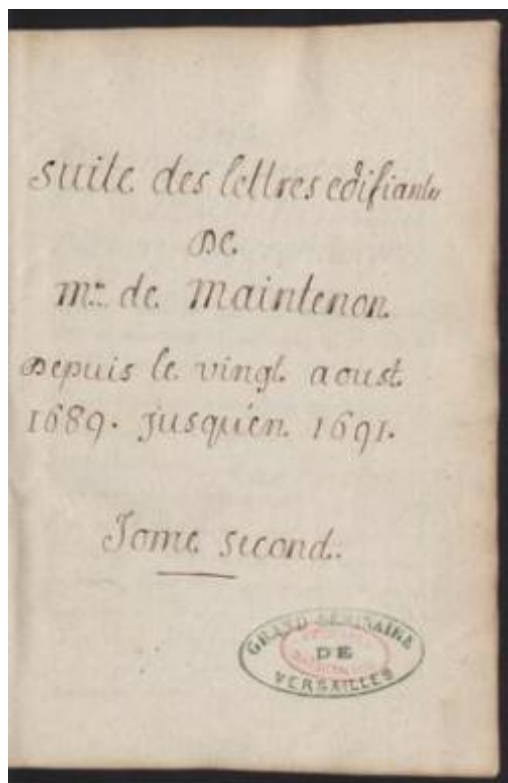 suite des lettres edifiantes
De
m.e de Maintenon
Depuis le vingt aoust
1689. jusqu'en 1691.
Tome second.
GRAND SÉMINAIRE
DE
VERSAILLES